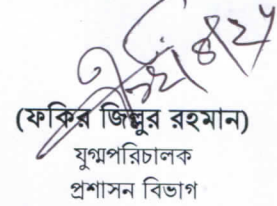 (ফকির জিল্লুর রহমান)
যুগ্মপরিচালক
প্রশাসন বিভাগ